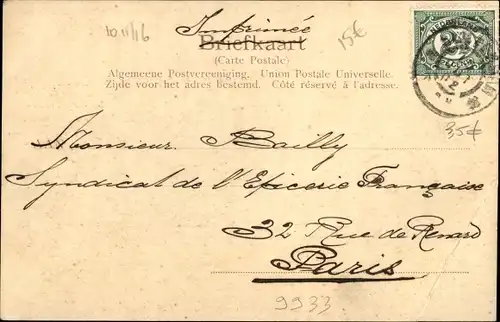 10 11/16
Imprimée
15€
Briefkaart
(Carte Postale)
Algemeene Postvereeniging. Union Postale Universelle.
Zijde voor het adres bestemd. Côté réservé à l'adresse.
NEDERLAND
2½
35€
Monsieur Bailly
Syndicat de l'Epicerie Française
32 Rue de Renard
Paris
9933